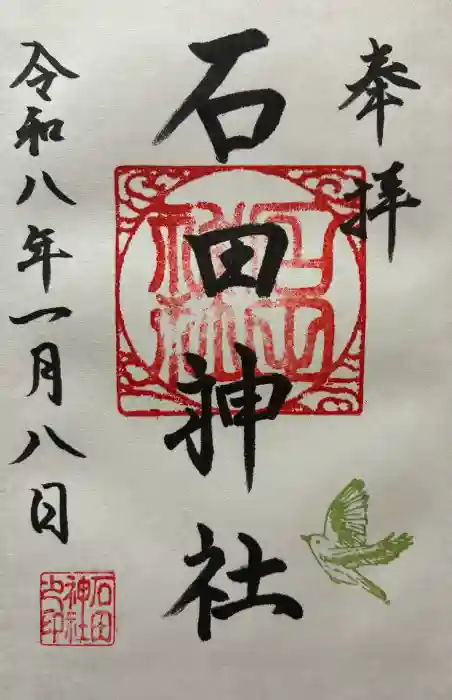 奉拝
石田神社
令和八年一月八日
石田
神社
之印